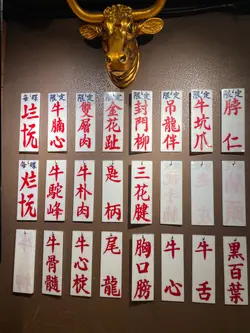 每碟
坑
限定
牛腩心
限定
雙層肉
限定
金花趾
限定
封門柳
限定
吊龍伴
限定
牛坑爪
限定
脖仁
每碟
爛坑
牛駝峰
牛朴肉
匙柄
三花腱
牛骨髓
牛心椗
尾龍
胸口朥
牛心
牛舌
黑百葉